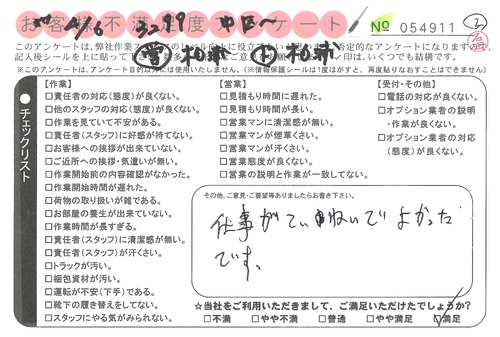 お客様不満足度アンケート
4/6
No 054911
このアンケートは、弊社作業スタッフ
※このアンケートは、アンケート目的以外には使用いたしません。(※情報保護シールは1度がすと、再度貼りなおすことはできません)
チェックリスト
【作業】
□責任者の対応(態度)が良くない。
□他のスタッフの対応(態度)が良くない。
□作業を見ていて不安がある。
□責任者(スタッフ)に好感が持てない。
□お客様への挨拶が出来ていない。
□ご近所への挨拶・気遣いが無い。
□作業開始前の内容確認がなかった。
□作業開始時間が遅れた。
□荷物の取り扱いが雑である。
□お部屋の養生が出来ていない。
□作業時間が長すぎる。
□責任者(スタッフ)に清潔感が無い。
□責任者(スタッフ)が汗くさい。
□トラックが汚い。
□梱包資材が汚い。
□運転が不安(下手)である。
□靴下の履き替えをしてない。
□スタッフにやる気がみられない。
【営業】
□見積もり時間に遅れた。
□見積もり時間が長い。
□営業マンに清潔感が無い。
□営業マンが煙草くさい。
□営業マンが汗くさい。
□営業態度が良くない。
□営業の説明と作業が一致してない。
【受付・その他】
□電話の対応が良くない。
□オプション業者の説明
・作業が良くない。
□オプション業者の対応
(態度)が良くない。
その他、ご意見・ご要望等ありましたらお書き下さい。
仕事がていねいでよかった
です。
☆当社をご利用いただきまして、ご満足いただけたでしょうか?
□不満 □やや不満 □普通 □やや満足 ☑満足